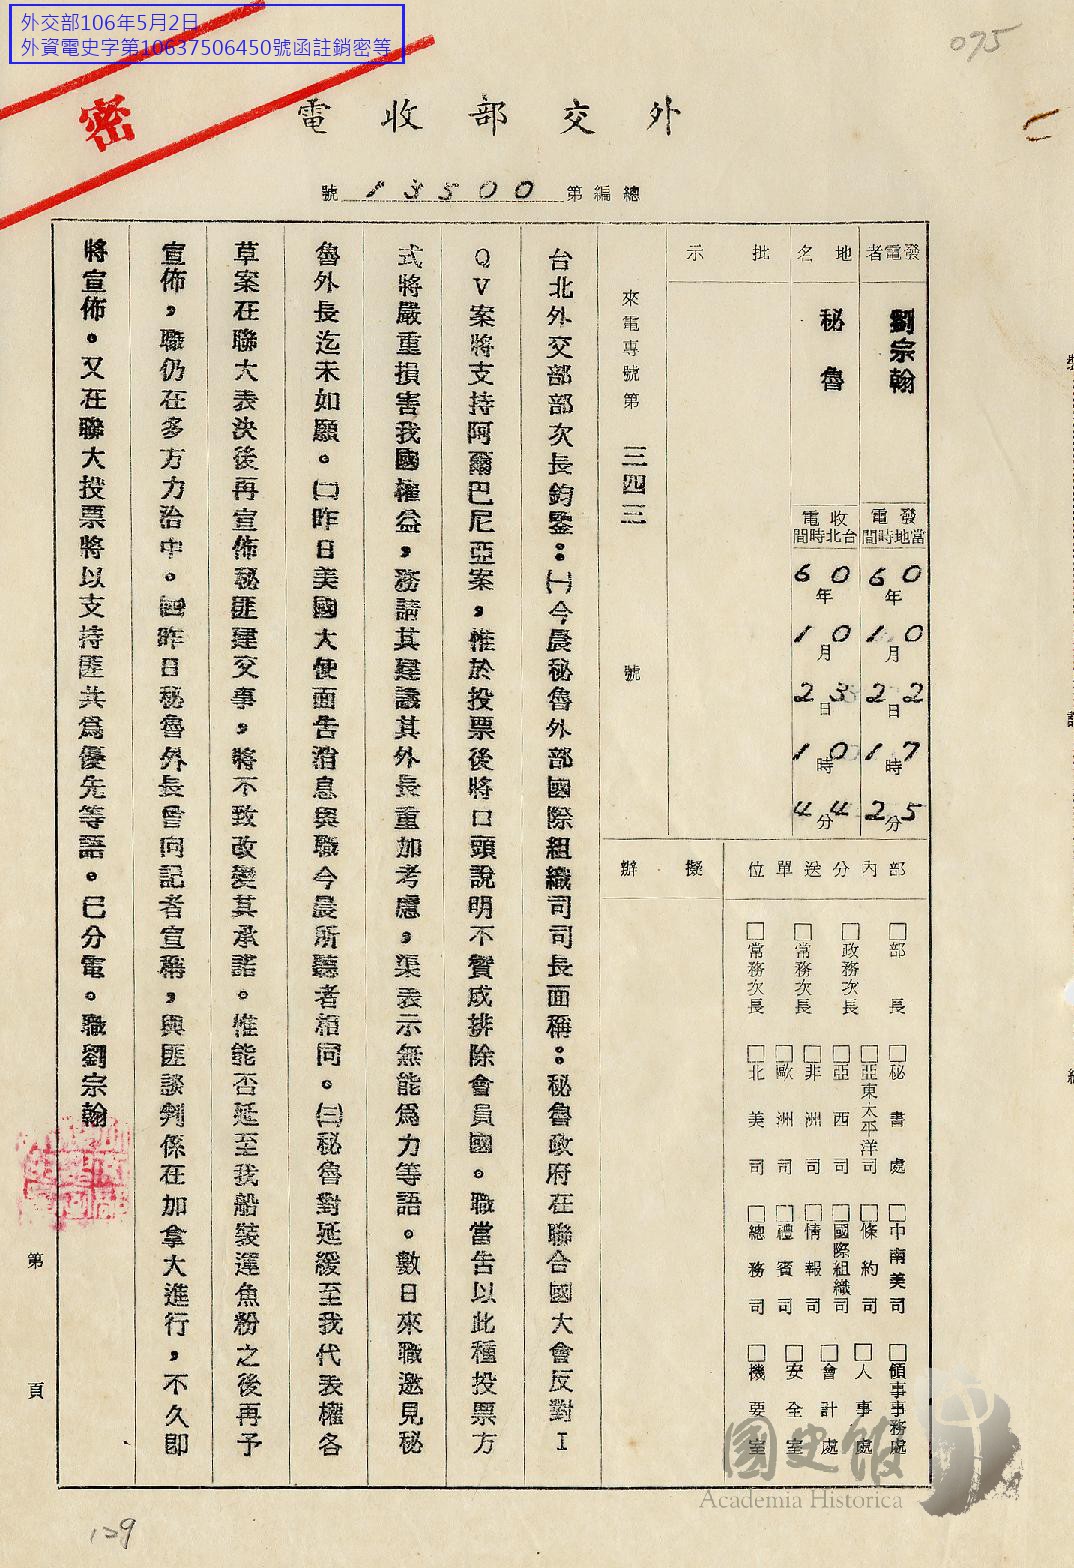 外交部106年5月2日
外資電史字第10637506450號函註銷密等
075
密
外交部收電
總編第13500號
發電者
劉宗翰
發電
當地時間
60年
10月
22日
17時
25分
地名
秘魯
收電
台北時間
60年
10月
23日
10時
44分
批示
來電專號第 三四三 號
部內分送單位
□部長
□政務次長
□常務次長
□常務次長
□秘書處
□亞東太平洋司
□亞西司
□非洲司
□歐洲司
□北美司
□中南美司
□條約司
□國際組織司
□情報司
□禮賓司
□總務司
□領事事務處
□人事處
□會計處
□安全室
□機要室
擬辦
台北外交部部次長鈞鑒：㈠今晨秘魯外部國際組織司司長面稱：秘魯政府在聯合國大會反對Ｉ
ＱＶ案將支持阿爾巴尼亞案，惟於投票後將口頭說明不贊成排除會員國。職當告以此種投票方
式將嚴重損害我國權益，務請其建議其外長重加考慮，渠表示無能為力等語。數日來職邀見秘
魯外長迄未如願。㈡昨日美國大使面告消息與職今晨所聽者相同。㈢秘魯對延緩至我代表權各
草案在聯大表決後再宣佈秘匪建交事，將不致改變其承諾。惟能否延至我船裝運魚粉之後再予
宣佈，職仍在多方力洽中。㈣昨日秘魯外長曾向記者宣稱，與匪談判係在加拿大進行，不久即
將宣佈。又在聯大投票將以支持匪共為優先等語。已分電。職劉宗翰
第 頁
國史館
Academia Historica
129